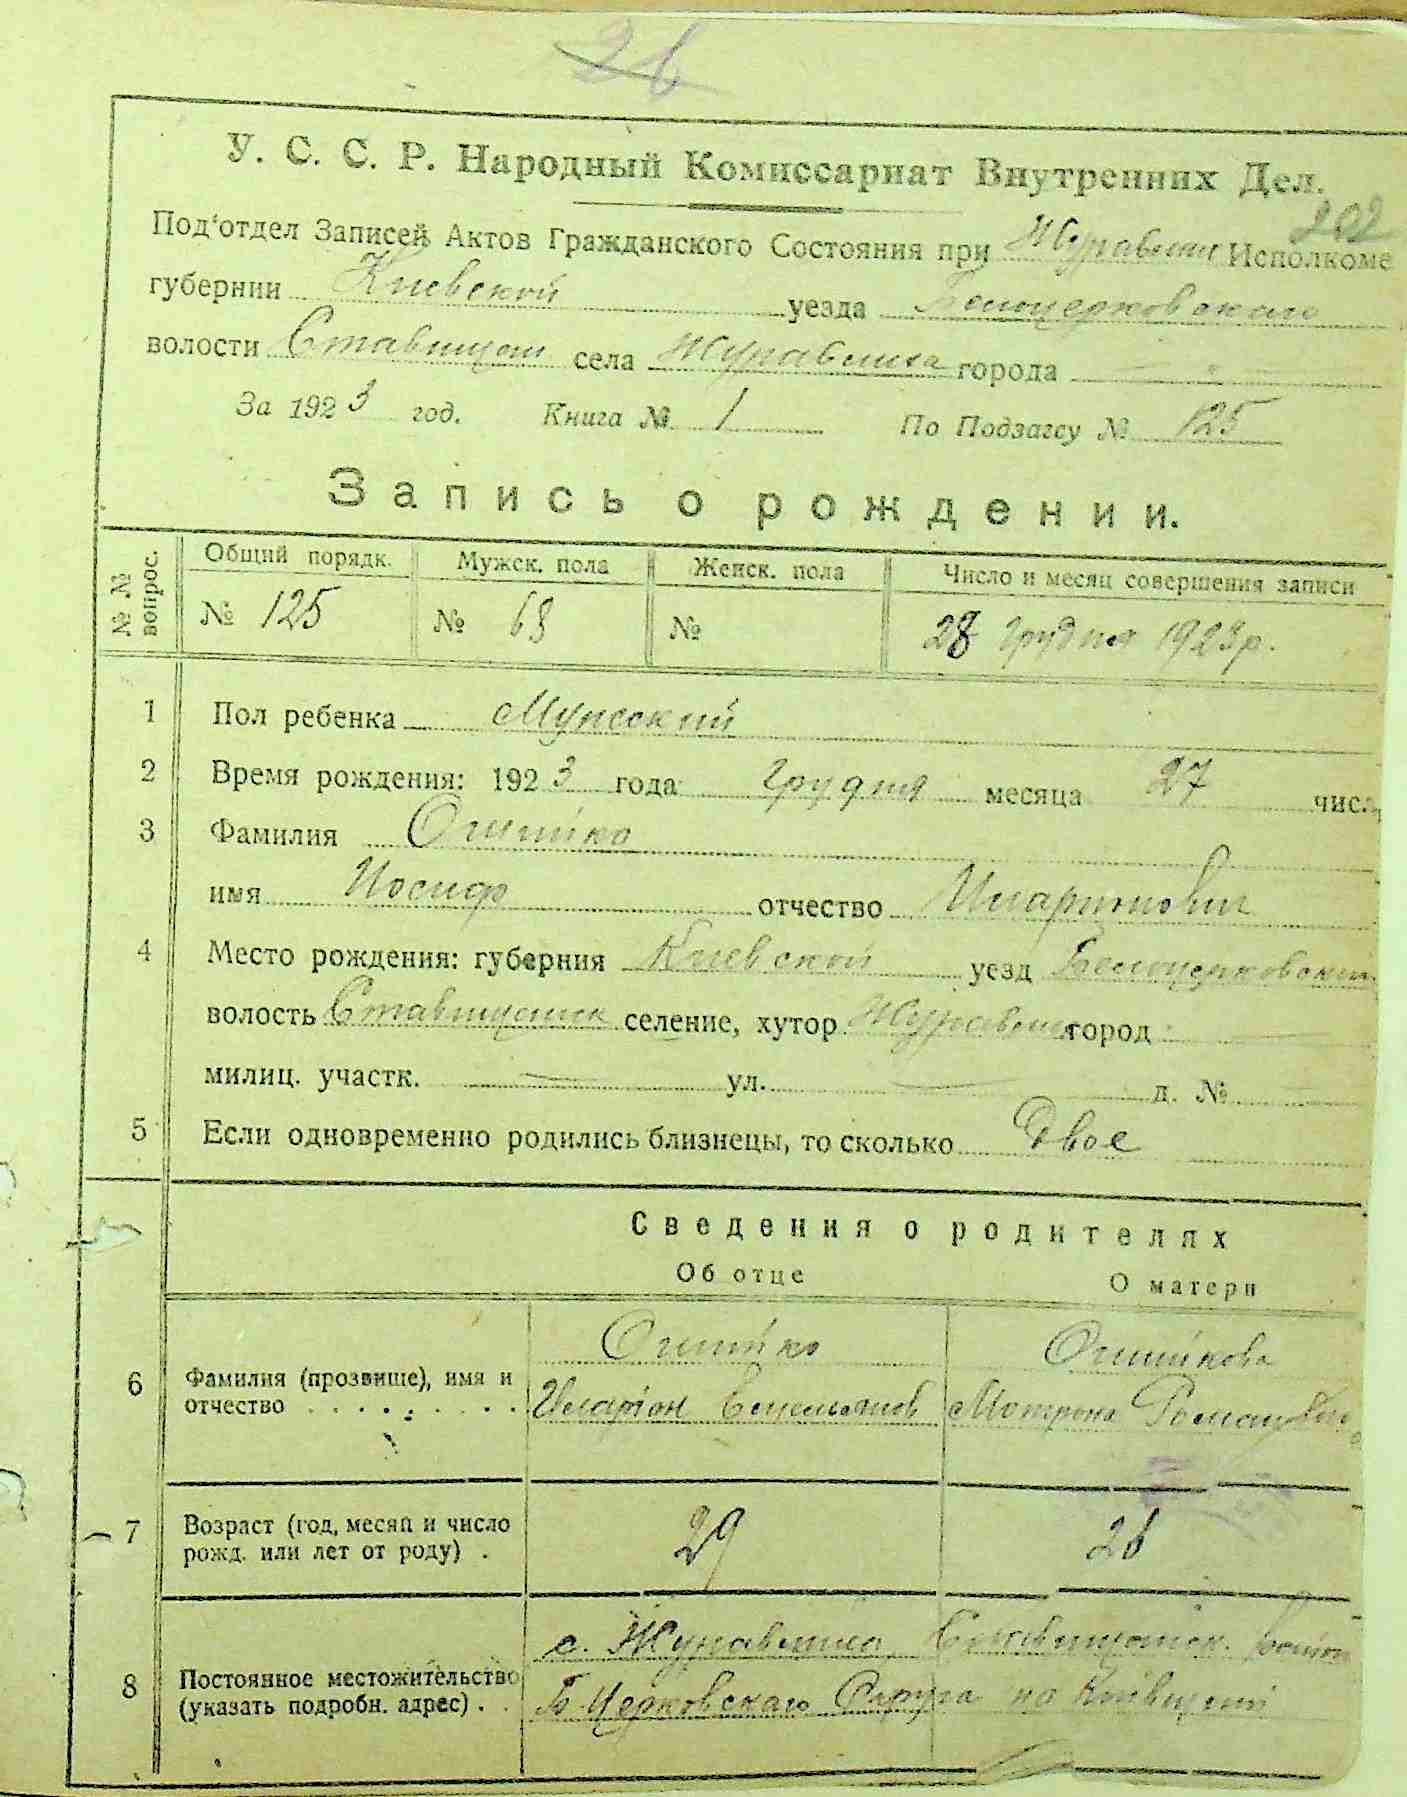 26
У. С. С. Р. Народный Комиссариат Внутренних Дел.
202
Под'отдел Записей Актов Гражданского Состояния при Журавском Исполкоме
губернии Киевской уезда Белоцерковского
волости Ставищан села Журавлиха города —
За 1923 год. Книга № 1 По Подзагсу № 125
Запись о рождении.
№ № вопрос.
Общий порядк. Мужск. пола Женск. пола Число и месяц совершения записи
№ 125 № 68 № 28 Грудня 1923 р.
1 Пол ребенка Мужский
2 Время рождения: 1923 года Грудня месяца 27 числ
3 Фамилия
имя Иосиф отчество Иларионович
4 Место рождения: губерния Киевской уезд Белоцерковский
волость селение, хутор город —
милиц. участк. — ул. — д. №
5 Если одновременно родились близнецы, то сколько Двое
Сведения о родителях
Об отце О матери
6 Фамилия (прозвище), имя и
отчество . . . . . . . . .
Иларіон Емельянов Мотрона
7 Возраст (год, месяц и число
рожд. или лет от роду) . 29 26
8 Постоянное местожительство
(указать подробн. адрес) . .
с. Журавлиха,
Б-Церковскаго Округа на Київщині